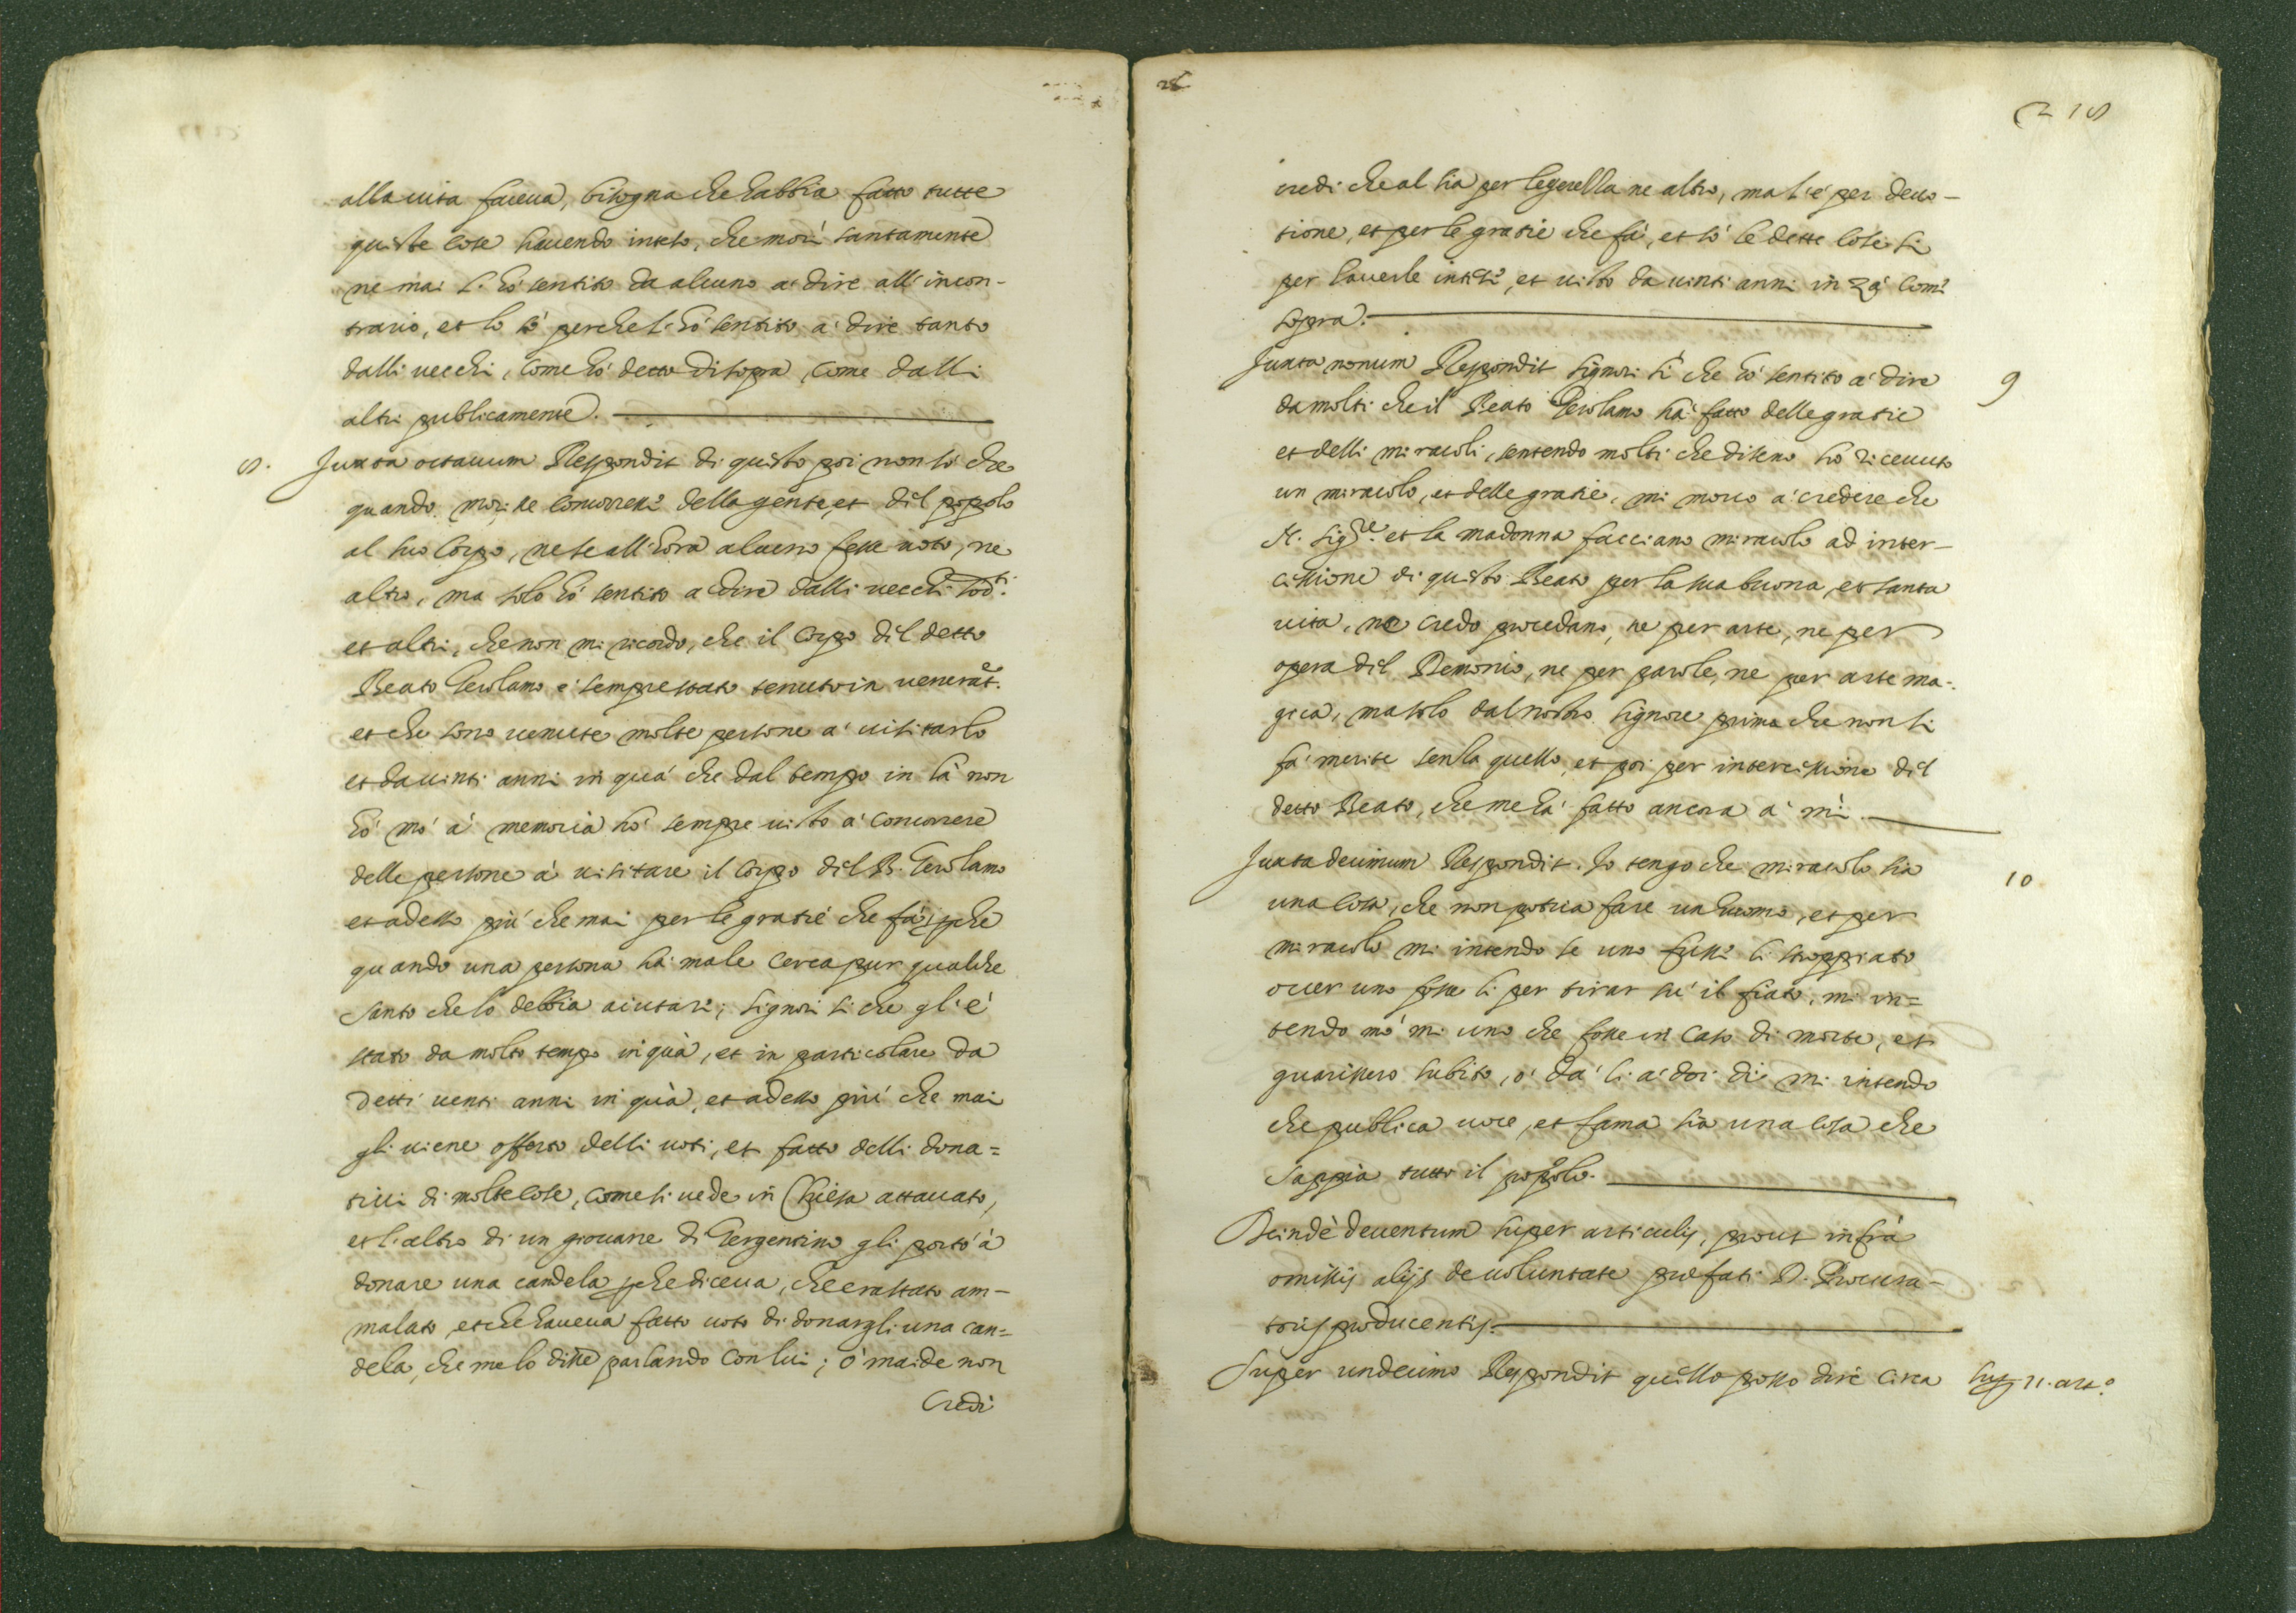 alla uita faceua, bisogna che habbia fatto tutte
queste cose hauendo inteso, che morì santamente
ne mai l'hò sentito da alcuno a dire all'incon-
trario, et lo sò perche l'hò sentito a' dire tanto
dalli uecchi, come hò detto di sopra, come dalli
altri publicamente.
8. Juxta octauum Respondit di questo poi non sò che
quando morì ne concorresse della gente, et dil popolo
al suo Corpo, ne se all'hora alcuno fesse uoto, ne
altro, ma solo hò sentito a dire dalli uecchi sod.ti
et altri, che non mi ricordo, che il Corpo dil detto
Beato Gerolamo è sempre stato tenuto in venerat.e
et che sono uenute molte persone a' uisitarlo
et da uinti anni in quà che dal tempo in là non
hò mò à memoria hò sempre uisto a' concorrere
delle persone à uisitare il Corpo dil B. Gerolamo
et adesso più che mai per le gratie che fà, pche
quando una persona hà male cerca pur qualche
Santo che lo debbia aiutare; signori si che gl'è
stato da molto tempo in quà, et in particolare da
detti uenti anni in quà, et adesso più che mai
gli uiene offerto delli uoti, et fatto delli dona=
tiui di molte cose, come si uede in Chiesa attacato,
et l'altro di un giouane di Gergentino gli portò à
donare una candela pche diceua, che era stato am-
malato, et che haueua fatto uoto di donargli una can=
dela, che me lo disse parlando con lui; ò maide non
Credi
215
credi che al sia per legerella ne altro, ma l'è per deuo-
tione, et per le gratie che fà, et sò le dette cose si
per hauerle intese, et uisto da uinti anni in zà come
sopra.
Juxta nonum Respondit signori sì che hò sentito a' dire 9
da molti che il Beato Gerolamo hà fatto delle gratie
et delli miracoli, sentendo molti che diseno hò riceuuto
un miracolo, et delle gratie, mi mouo a' credere che
N. Sig.re et la madonna facciano miracolo ad inter-
cissione di questo Beato per la sua buona, et santa
uita, ne credo procedano, ne per arte, ne per
opera dil Demonio, ne per parole, ne per arte ma-
gica, ma solo dal nostro Signore prima che non si
fà merite senza quello, et poi per intercissione dil
detto Beato, che me hà fatto ancora a' mì.
Juxta decimum Respondit. Io tengo che miracolo sia 10
una cosa, che non potria fare un huomo, et per
miracolo mi intendo se uno fusse li stroppiato
ouer uno fosse li per tirar sù il fiato, mi in=
tendo mò mi uno che fosse in caso di morte, et
guarissero subito, ò dà li a' doi dì mi intendo
che publica uoce, et fama sia una cosa che
sappia tutto il popolo.
Deindè deuentum super articulis, prout infrà
omissis alijs de uoluntate præfati D. Procura-
toris producentis.
Super undecimo Respondit quello posso dire circa Sup 11. art.o